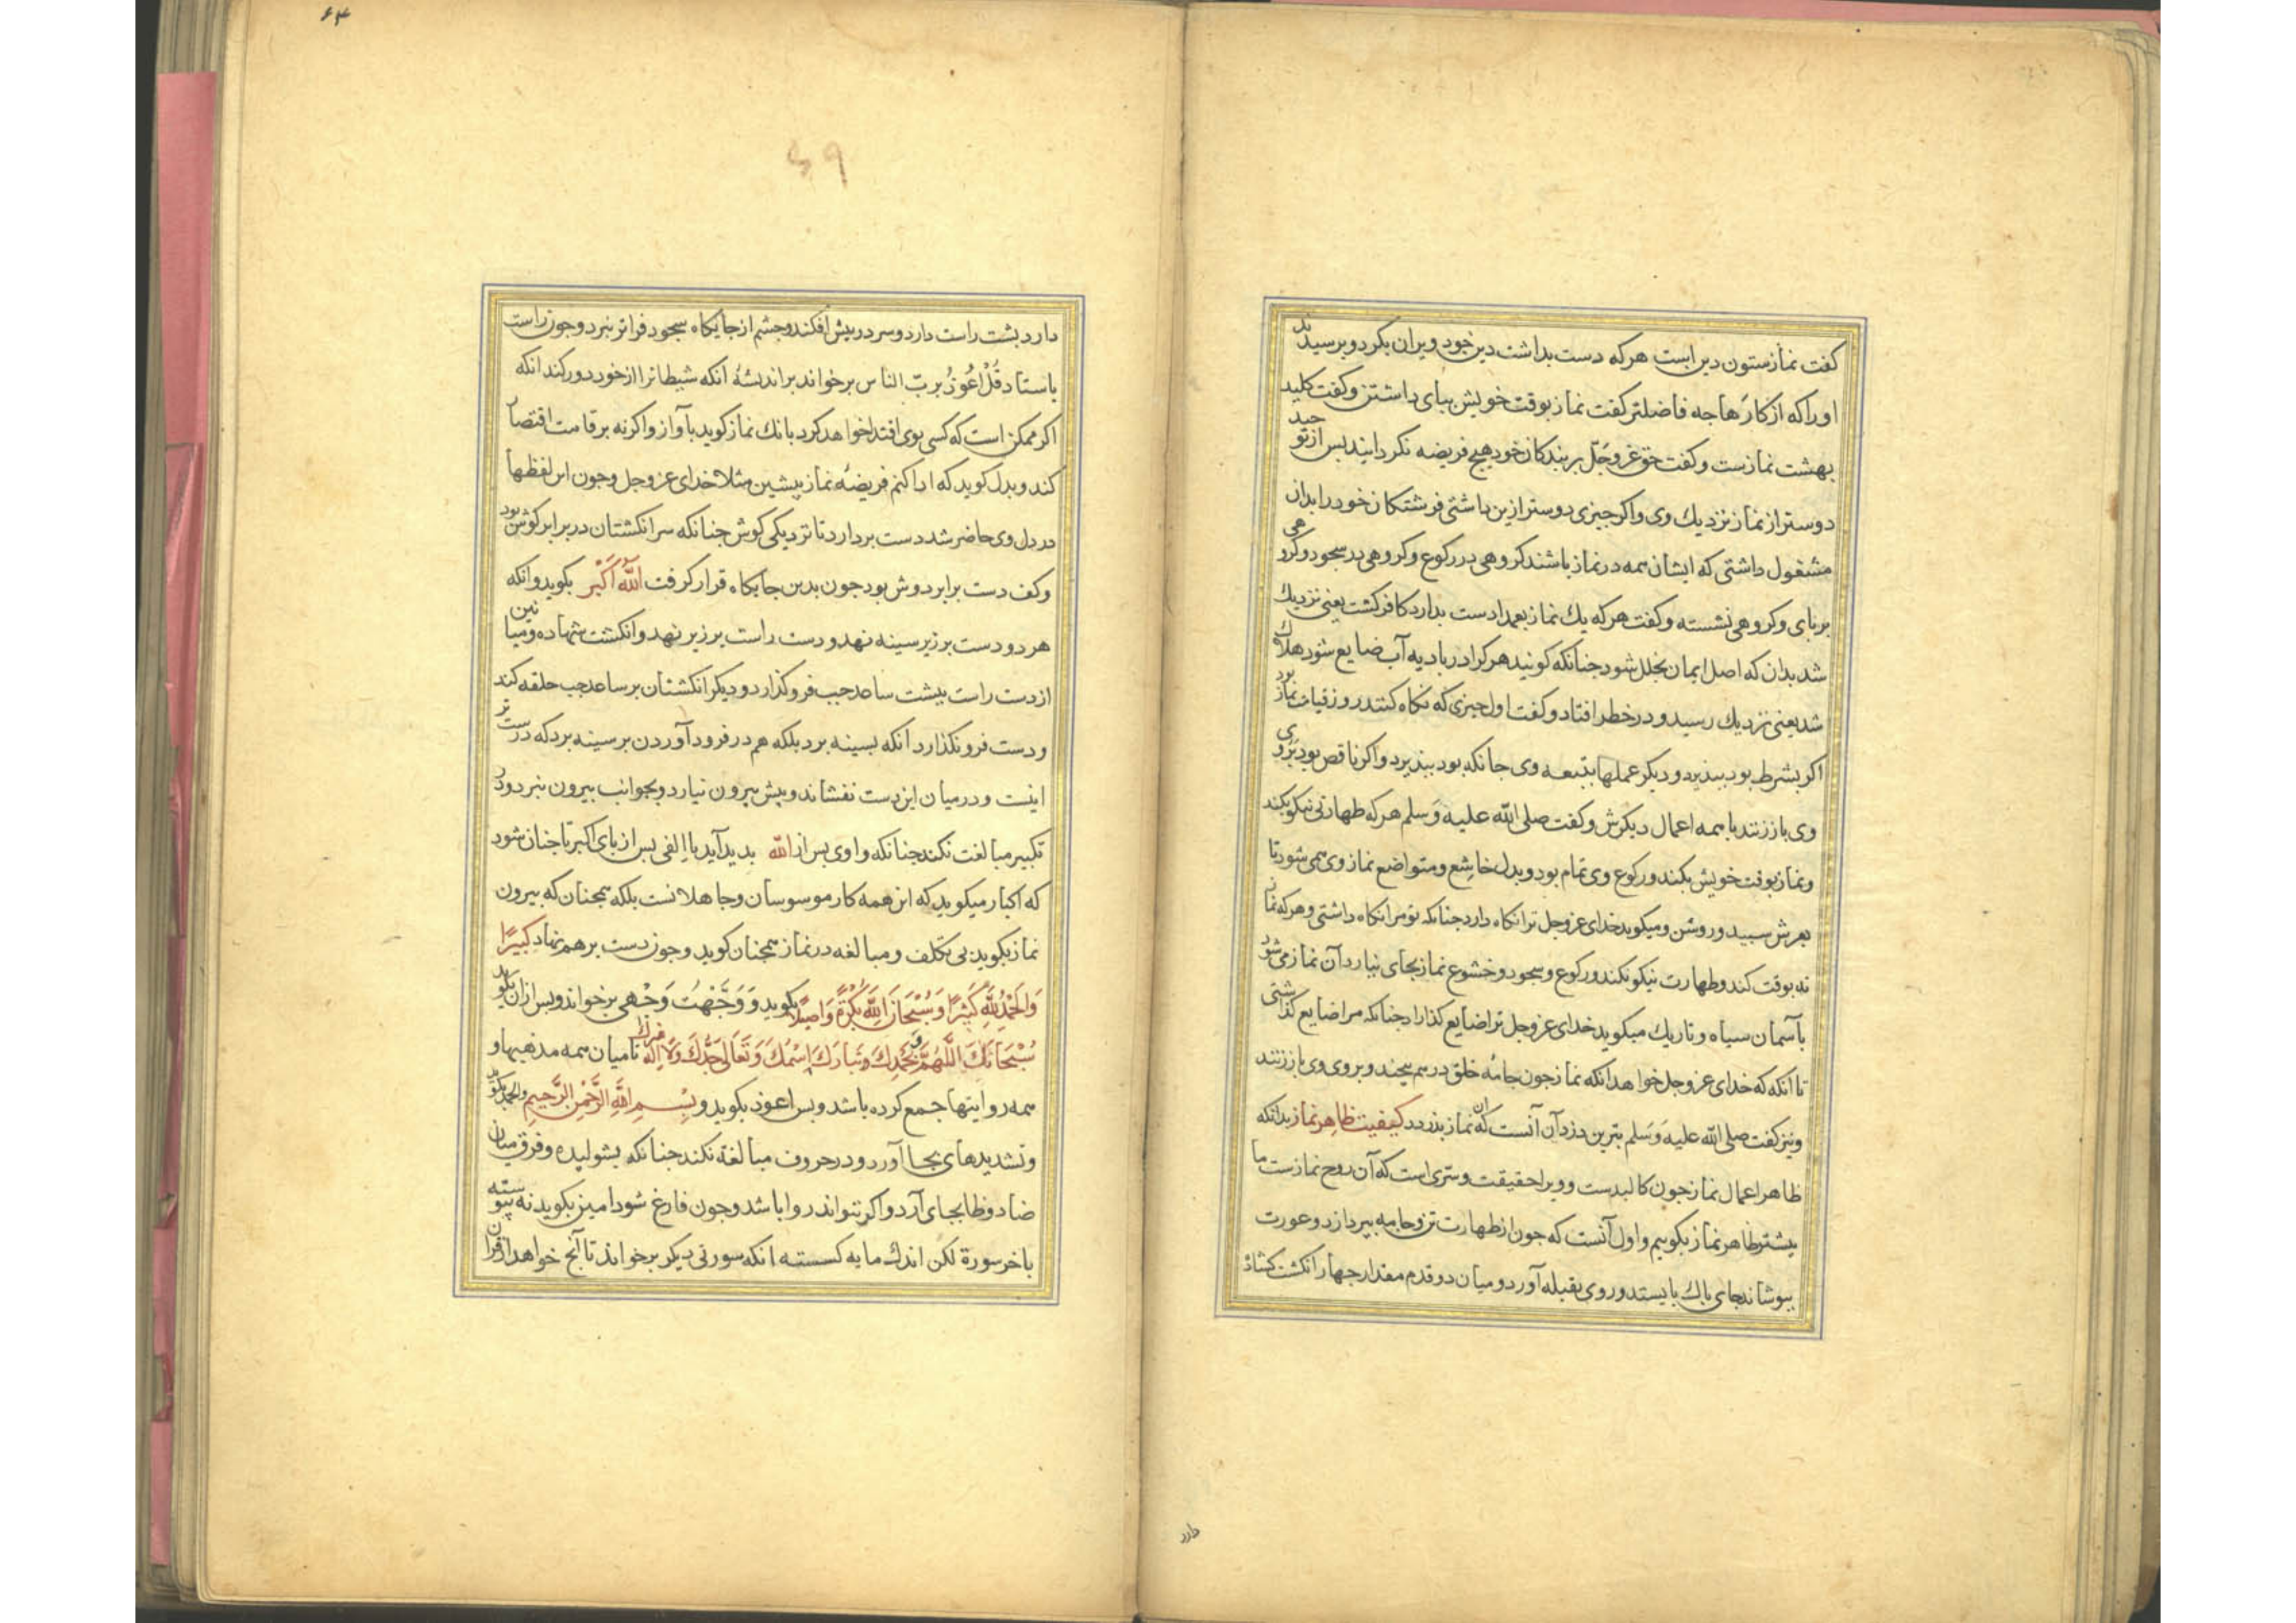 کفت نماز ستون دین است هرکه دست بداشت دین خود ویران بکرد و برسیدند
اورا که از کارها جه فاضلتر کفت نماز بوقت خویش ببای داشتن وکفت کلید
بهشت نمازست وکفت حق عَزّوجَلّ بر بندکان خود هیج فریضه نکردانید بس از توحید
دوستر از نماز نزدیك وی واکر جیزی دوستر ازین داشتی فرشتکان خود را بدان
مشغول داشتی که ایشان همه در نماز باشند کروهی در رکوع وکروهی در سجود وکروهی
بربای وکروهی نشسته وکفت هرکه یك نماز بعمدا دست بدارد کافر کشت یعنی نزدیك
شد بدان که اصل ایمان بخلل شود جنانکه کویند هرکرا در بادیه آب ضایع شود هلاك
شد یعنی نزدیك رسید ودر خطر افتاد وکفت اول جیزی که نکاه کنند روز قیامت نماز بود
اکر بشرط بود ببذیرد ودیکر عملها بتبعه وی جانکه بود ببذیرد واکر ناقص بود بَروی
وی باز زنند با همه اعمال دیکرش وکفت صلی الله علیه وَسلم هرکه طهارتی نیکو بکند
ونماز بوقت خویش بکند ورکوع وی تمام بود وبدل خاشع ومتواضع نماز وی همی شود تا
بعرش سبید وروشن ومیکوید خدای عزوجل ترا نکاه دارد جنانکه تو مرا نکاه داشتی وهرکه نماز
نه بوقت کند وطهارت نیکو نکند ورکوع وسجود وخشوع نماز بجای نیارد آن نماز می شود
بآسمان سیاه وتاریك میکوید خدای عزوجل ترا ضایع کذاراد جنانکه مرا ضایع کذاشتی
تا آنکه که خدای عزوجل خواهد انکه نماز جون جامهٔ خلق درهم بیجند وبروی وی باز زنند
ونیز کفت صلی الله علیه وَسَلم بترین دزدان آنست که از نماز بدزدد کیفیت ظاهر نماز بدانکه
ظاهر اعمال نماز جون کالبدست وویرا حقیقت وسری است که آن روح نمازست ما
بیشتر ظاهر نماز بکوییم واول آنست که جون از طهارت تن وجامه ببردازد وعورت
ببوشاند جای باك بایستد وروی بقبله آورد ومیان دو قدم مقدار جهار انکشت کشاذ
دارد
۶۴
۶۹
دارد بشت راست دارد وسر در بیش افکند وجشم از جایکاه سجود فراتر نبرد وجون راست
باستاد قُلْ اَعُوذُ بربّ الناس برخواند بر اندیشهٔ آنکه شیطانرا از خود دور کند انکه
اکر ممکن است که کسی بوی اقتدا خواهد کرد بانك نماز کوید بآواز واکرنه بر قامت اقتصار
کند وبدل کوید که ادا کنم فریضهٔ نماز بیشین مثلا خدای عزوجل وجون این لفظها
در دل وی حاضر شد دست بردارد تا نزدیکی کوش جنانکه سر انکشتان در برابر کوش بود
وکف دست برابر دوش بود جون بدین جایکاه قرار کرفت اَللّٰهُ اَکْبَر بکوید وانکه
هر دو دست بر زیر سینه نهد ودست راست بر زبر نهد وانکشت شهاده ومیانین
از دست راست ببشت ساعد جب فرو کذارد ودیکر انکشتان بر ساعد جب حلقه کند
ودست فرو نکذارد آنکه بسینه برد بلکه هم در فرود آوردن بر سینه برد که درست تر
اینست ودر میان این دست نفشاند وبیش بیرون نیارد وبجوانب بیرون نبرد ودر
تکبیر مبالغت نکند جنانکه واوی بس از الله بدید آید یا الفی بس از بای اکبر تا جنان شود
که اکبار میکوید که این همه کار موسوسان وجاهلانست بلکه همجنان که بیرون
نماز بکوید بی تکلف ومبالغه در نماز همجنان کوید وجون دست برهم نهاد کبیرًا
وَالْحَمْدُ لِلّٰهِ کَثیرًا وَسُبْحَانَ اللّٰهِ بُکْرَةً وَاَصیلًا بکوید وَوَجَّهْتُ وَجْهی برخواند وبس ازان بکوید
سُبْحَانَكَ اللّٰهُمَّ وَبِحَمْدِكَ وَتَبارَكَ اسْمُكَ وَتَعَالٰی جَدُّكَ وَلَا اِلٰهَ غیرك تا میان همه مذهبها و
همه روایتها جمع کرده باشد وبس اعوذ بکوید وبِسْمِ اللّٰهِ الرَّحْمٰنِ الرَّحیمِ والحمد بکوید
وتشدیدهای بجا آورد ودر حروف مبالغة نکند جنانکه بشولیده وفرق میان
ضاد وظا بجای آرد واکر نتواند روا باشد وجون فارغ شود امین بکوید نه بیوسته
باخر سورة لکن اندك مایه کسسته انکه سورتی دیکر برخواند تا آنج خواهد از قران